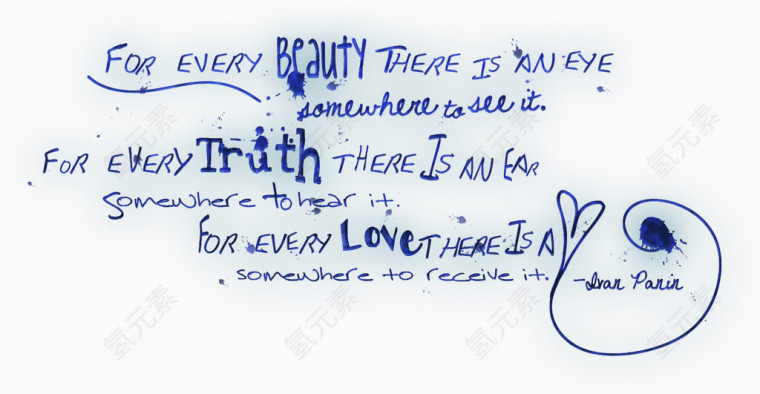 FOR EVERY BEAUTY THERE IS AN EYE
somewhere to see it.
FOR EVERY Truth THERE IS AN EAR
somewhere to hear it.
FOR EVERY LOVE THERE IS A
somewhere to receive it.
-Ivan Panin
氢元素 氢元素 氢元素 氢元素
氢元素 氢元素 氢元素 氢元素